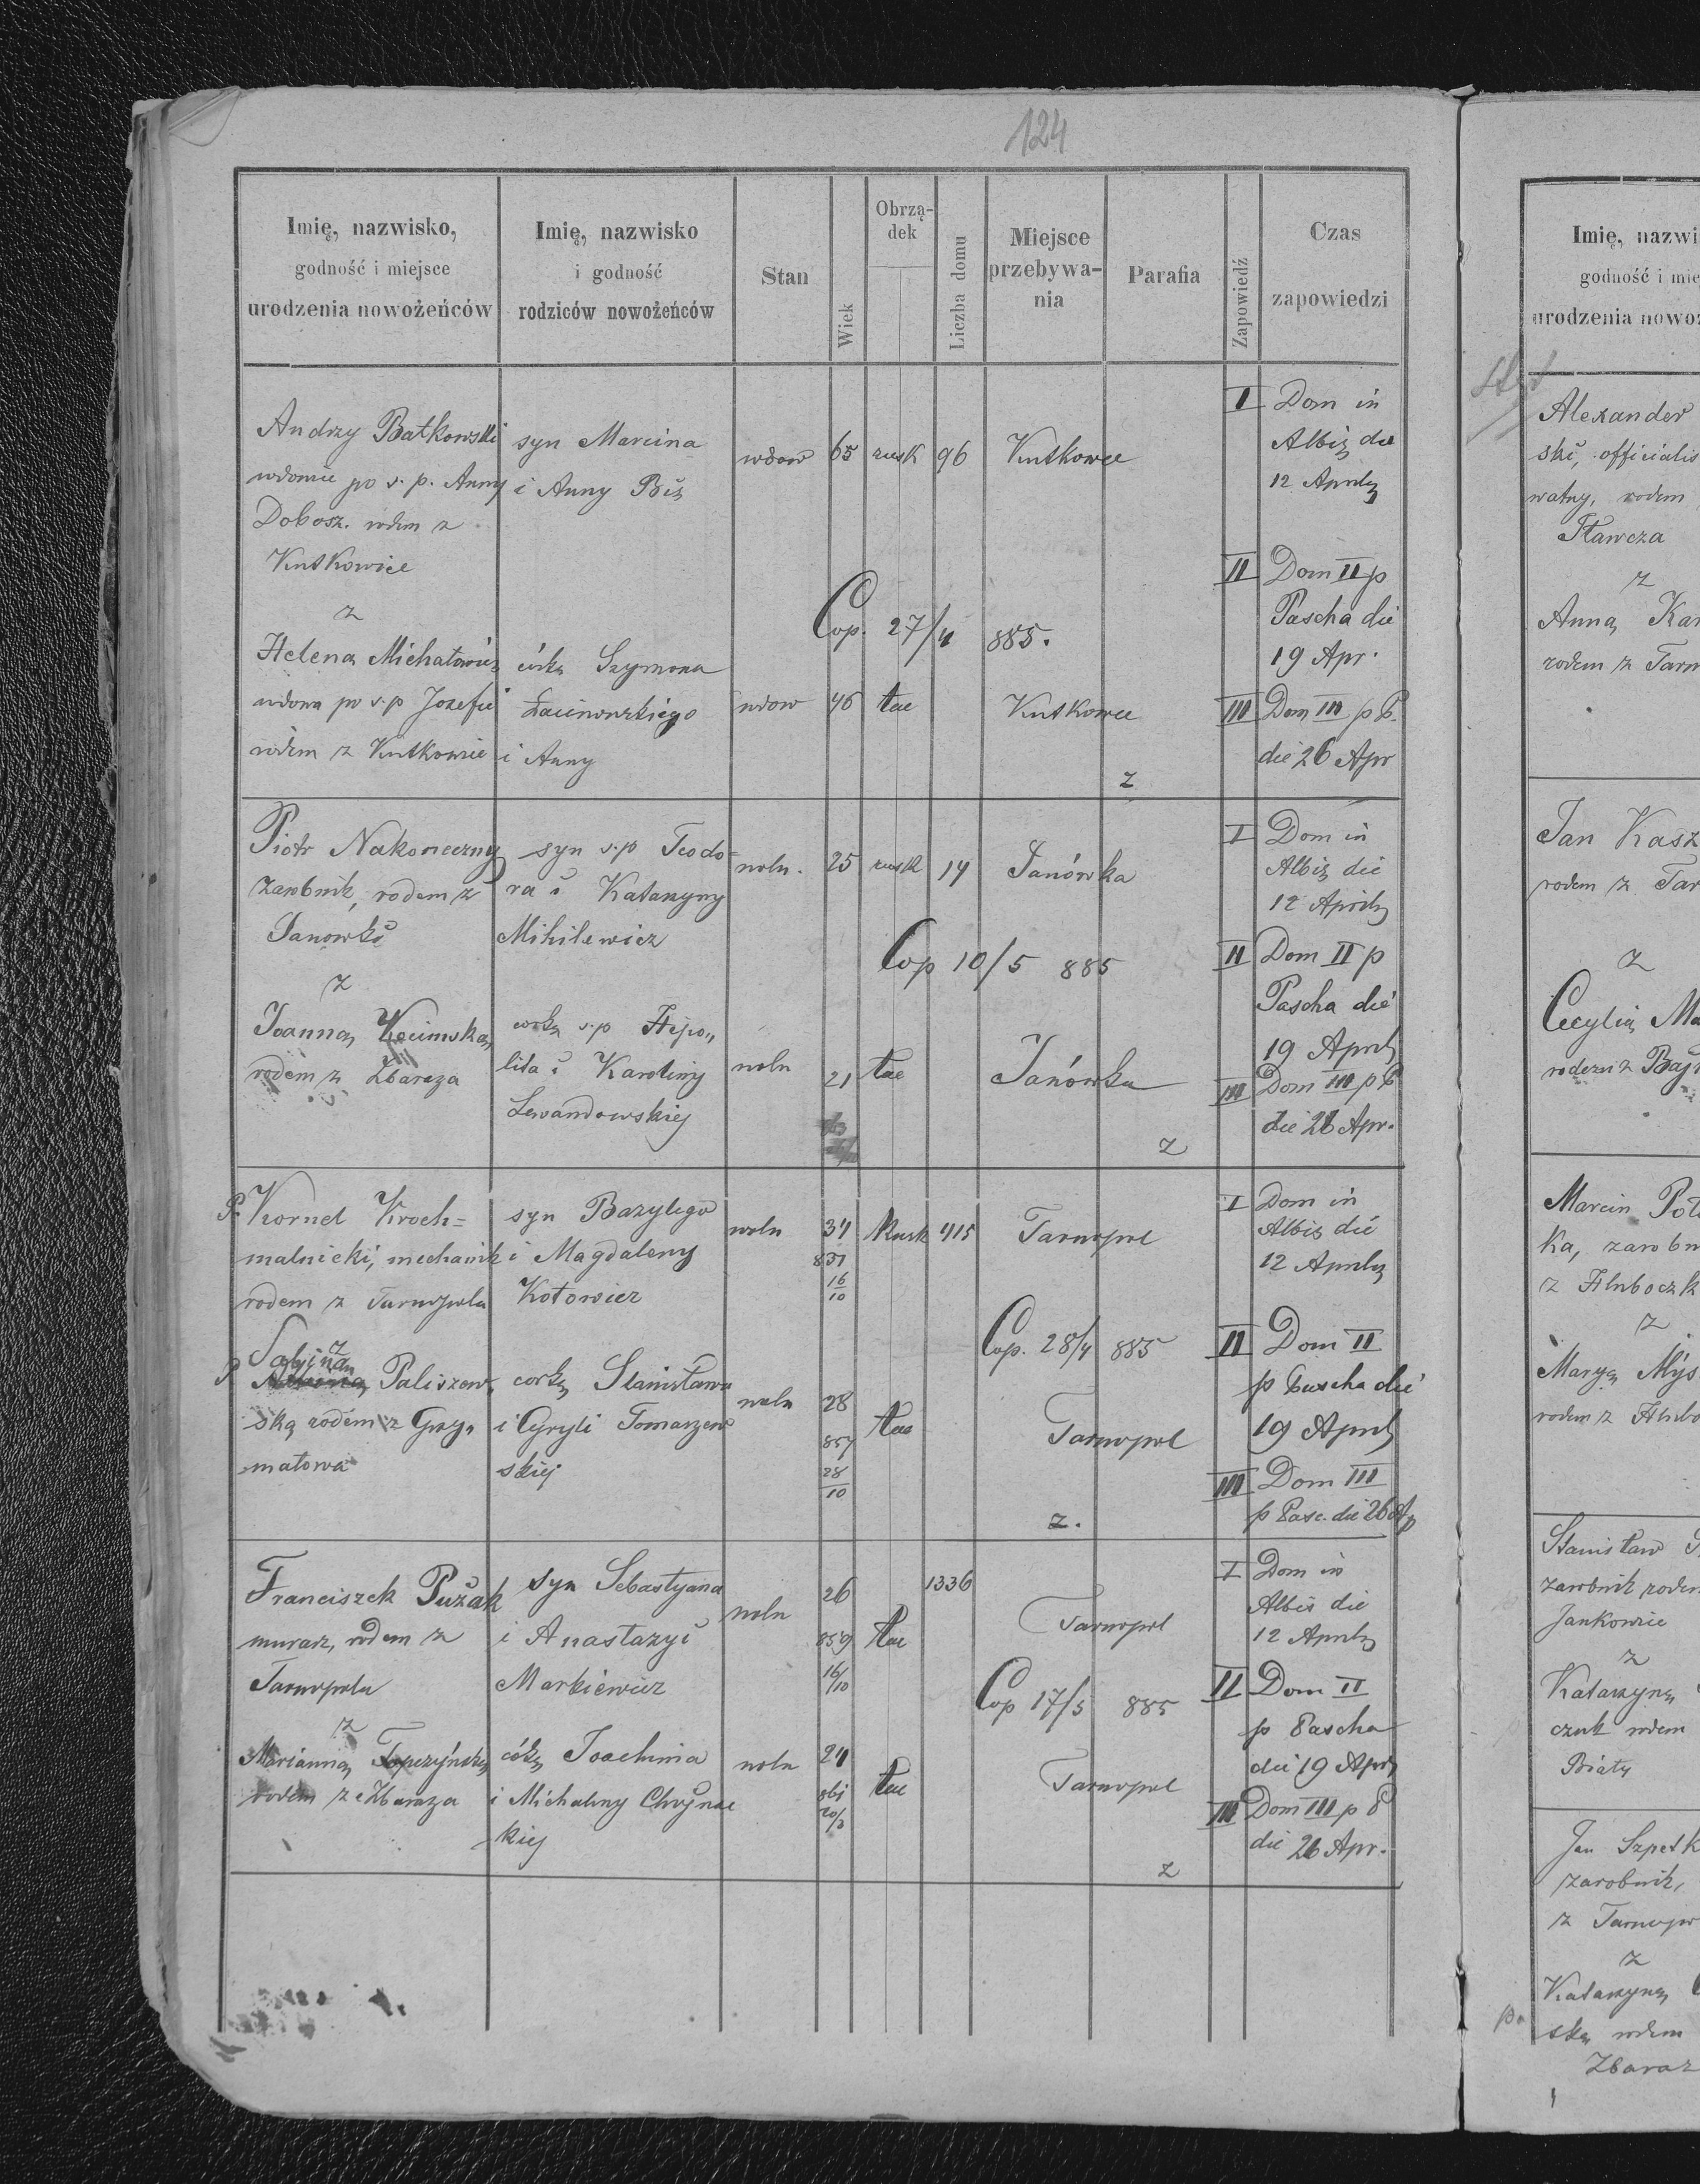 124
Imię, nazwisko,
godność i miejsce
urodzenia nowożeńców
Imię, nazwisko
i godność
rodziców nowożeńców
Stan
Wiek
Obrzą-
dek
Liczba domu
Miejsce
przebywa-
nia
Parafia
Zapowiedź
Czas
zapowiedzi
Andrzy Batkowski
wdowiec po s. p. Anny
Dobosz. rodem z
Kutkowiec
z
Heleną Michałowicz
wdową po s.p Jozefie
rodem z Kutkowic
syn Marcina
i Anny Biś
córką Szymona
i Anny
wdow
65
rusk
96
Kutkowce
Cop. 27/4 885.
wdow
46
łac
Kutkowce
z
I Dom in
Albis die
12 Aprilis
II Dom II p
Pascha die
19 Apr.
III Dom III p P.
die 26 Apr
Piotr Nakoneczny
zarobnik, rodem z
Janowki
z
Joanną
rodem z Zbaraza
syn s.p Teodo-
ra i Katarzyny
Mihilewicz
corką s.p Hipo„
lita i Karoliny
Lewandowskiej
woln.
25
rusk
14
Janówka
Cop 10/5 885
woln
21
łac
Janówka
z
I Dom in
Albis die
12 Aprilis
II Dom II p
Pascha die
19 Aprilis
III Dom III p P
die 26 Apr.
P. Kornel Kroch=
malnicki, mechanik
rodem z Tarnopola
z
Sabiną
P Paliszew„
ską rodem z Grzy„
małowa
syn Bazylego
i Magdaleny
Kotowicz
corką Stanisława
i Cyryli Tomaszew
skiej
woln
34
851
16
10
Rusk
415
Tarnopol
Cop. 28/4 885
woln
28
857
28
10
łac
Tarnopol
z.
I Dom in
Albis die
12 Aprilis
II Dom II
p Pascha die
19 Aprilis
III Dom III
p Pasc. die 26 Ap
Franciszek Pużak
murarz, rodem z
Tarnopola
z
Marianną Topczyńską
rodem z Zbaraza
syn Sebastyana
i Anastazyi
Markiewicz
córką Joachima
i Michaliny Chojnac
kiej
woln
26
859
16/10
łac
1336
Tarnopol
Cop 17/5 885
woln
24
861
20/3
łac
Tarnopol
z
I Dom in
Albis die
12 Aprilis
II Dom II
p Pascha
die 19 Apr
III Dom III p P
die 26 Apr.
Imię, nazwi
godność i mie
urodzenia nowoż
Alexander
ski, officialis
watny, rodem
Tławcza
z
Anną Kar
rodem z Tarn
Jan Kasz
rodem z Tar
z
Cecylią Ma
rodem z Baj
Marcin Poto
ka, zarobn
z Hłuboczk
z
Maryą Mys
rodem z Hłubo
Stanisław
zarobnik rodem
Jankowiec
z
Katarzyną
czuk rodem
Biały
Jan Szpetk
zarobnik,
z Tarnopo
z
Katarzyną
p. ską rodem
Zbaraz